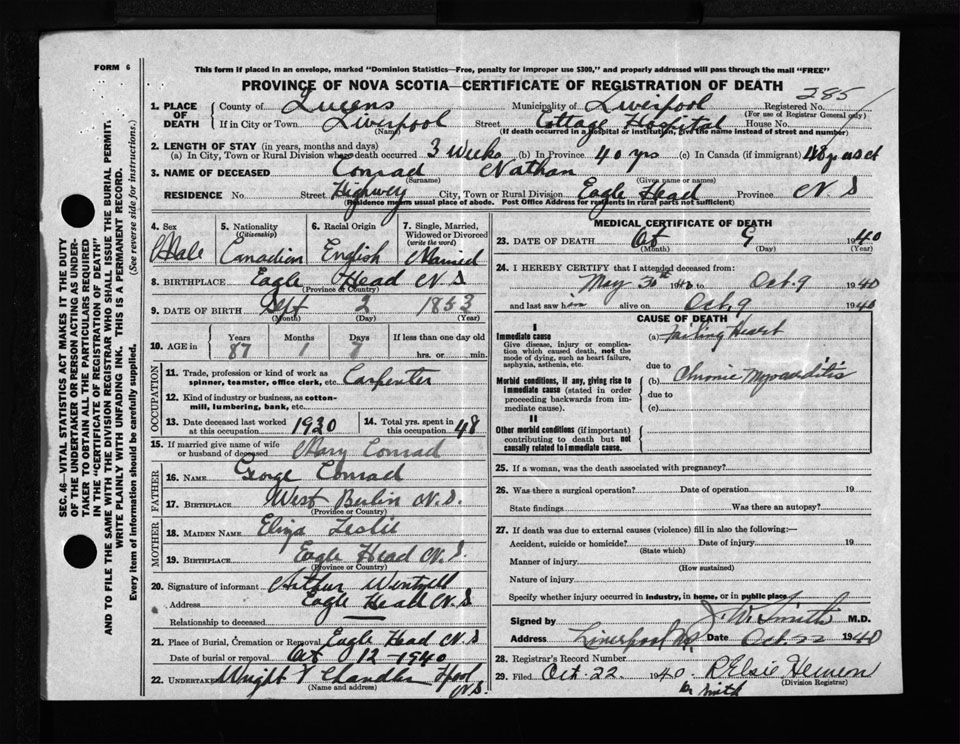 FORM 6
This form if placed in an envelope, marked "Dominion Statistics—Free, penalty for improper use $300," and properly addressed will pass through the mail "FREE"
PROVINCE OF NOVA SCOTIA—CERTIFICATE OF REGISTRATION OF DEATH
285
1. PLACE OF DEATH County of Queens Municipality of Liverpool Registered No.
(For use of Registrar General only)
If in City or Town Liverpool Street Cottage Hospital House No.
(Name) (If death occurred in a hospital or institution, give the name instead of street and number)
2. LENGTH OF STAY (in years, months and days)
(a) In City, Town or Rural Division where death occurred 3 Weeks (b) In Province 40 yrs (c) In Canada (if immigrant) 48
3. NAME OF DECEASED Conrad Nathan
(Surname) (Given name or names)
RESIDENCE No. Street Highway City, Town or Rural Division Eagle Head Province N.S
(Residence means usual place of abode. Post Office Address for residents in rural parts not sufficient)
4. Sex Male
5. Nationality (Citizenship) Canadian
6. Racial Origin English
7. Single, Married, Widowed or Divorced (write the word) Married
8. BIRTHPLACE Eagle Head N.S
(Province or Country)
9. DATE OF BIRTH Sept 2 1853
(Month) (Day) (Year)
10. AGE in Years 87 Months 1 Days 7 If less than one day old hrs. or min.
OCCUPATION
11. Trade, profession or kind of work as spinner, teamster, office clerk, etc. Carpenter
12. Kind of industry or business, as cotton-mill, lumbering, bank, etc.
13. Date deceased last worked at this occupation 1920
14. Total yrs. spent in this occupation 48
15. If married give name of wife or husband of deceased Mary Conrad
FATHER
16. NAME George Conrad
17. BIRTHPLACE West Berlin N.S.
(Province or Country)
MOTHER
18. MAIDEN NAME Eliza Leslie
19. BIRTHPLACE Eagle Head N.S.
(Province or Country)
20. Signature of informant Arthur Wentzell
Address Eagle Head N.S
Relationship to deceased
21. Place of Burial, Cremation or Removal Eagle Head N.S
Date of burial or removal Oct 12 - 1940
22. UNDERTAKER Wright & Chandler Lpool N.S.
(Name and address)
MEDICAL CERTIFICATE OF DEATH
23. DATE OF DEATH Oct 9 1940
(Month) (Day) (Year)
24. I HEREBY CERTIFY that I attended deceased from:
May 30th 1940 to Oct. 9 1940
and last saw him alive on Oct. 9 1940
CAUSE OF DEATH
I
Immediate cause (a) Failing Heart
Give disease, injury or complication which caused death, not the mode of dying, such as heart failure, asphyxia, asthenia, etc.
due to
Morbid conditions, if any, giving rise to immediate cause (stated in order proceeding backwards from immediate cause).
(b) Chronic Myocarditis
due to
(c)
II
Other morbid conditions (if important) contributing to death but not causally related to immediate cause.
25. If a woman, was the death associated with pregnancy?
26. Was there a surgical operation? Date of operation 19
State findings Was there an autopsy?
27. If death was due to external causes (violence) fill in also the following:—
Accident, suicide or homicide? Date of injury 19
(State which)
Manner of injury
(How sustained)
Nature of injury
Specify whether injury occurred in industry, in home, or in public place
Signed by J. W. Smith M.D.
Address Liverpool N.S. Date Oct 22 1940
28. Registrar's Record Number
29. Filed Oct. 22 1940 Elsie
(Division Registrar)
Dr Smith
SEC. 46—VITAL STATISTICS ACT MAKES IT THE DUTY
OF THE UNDERTAKER OR PERSON ACTING AS UNDER-
TAKER TO OBTAIN ALL THE PARTICULARS REQUIRED
IN THE "CERTIFICATE OF REGISTRATION OF DEATH"
AND TO FILE THE SAME WITH THE DIVISION REGISTRAR WHO SHALL ISSUE THE BURIAL PERMIT.
WRITE PLAINLY WITH UNFADING INK. THIS IS A PERMANENT RECORD.
Every item of information should be carefully supplied. (See reverse side for instructions.)